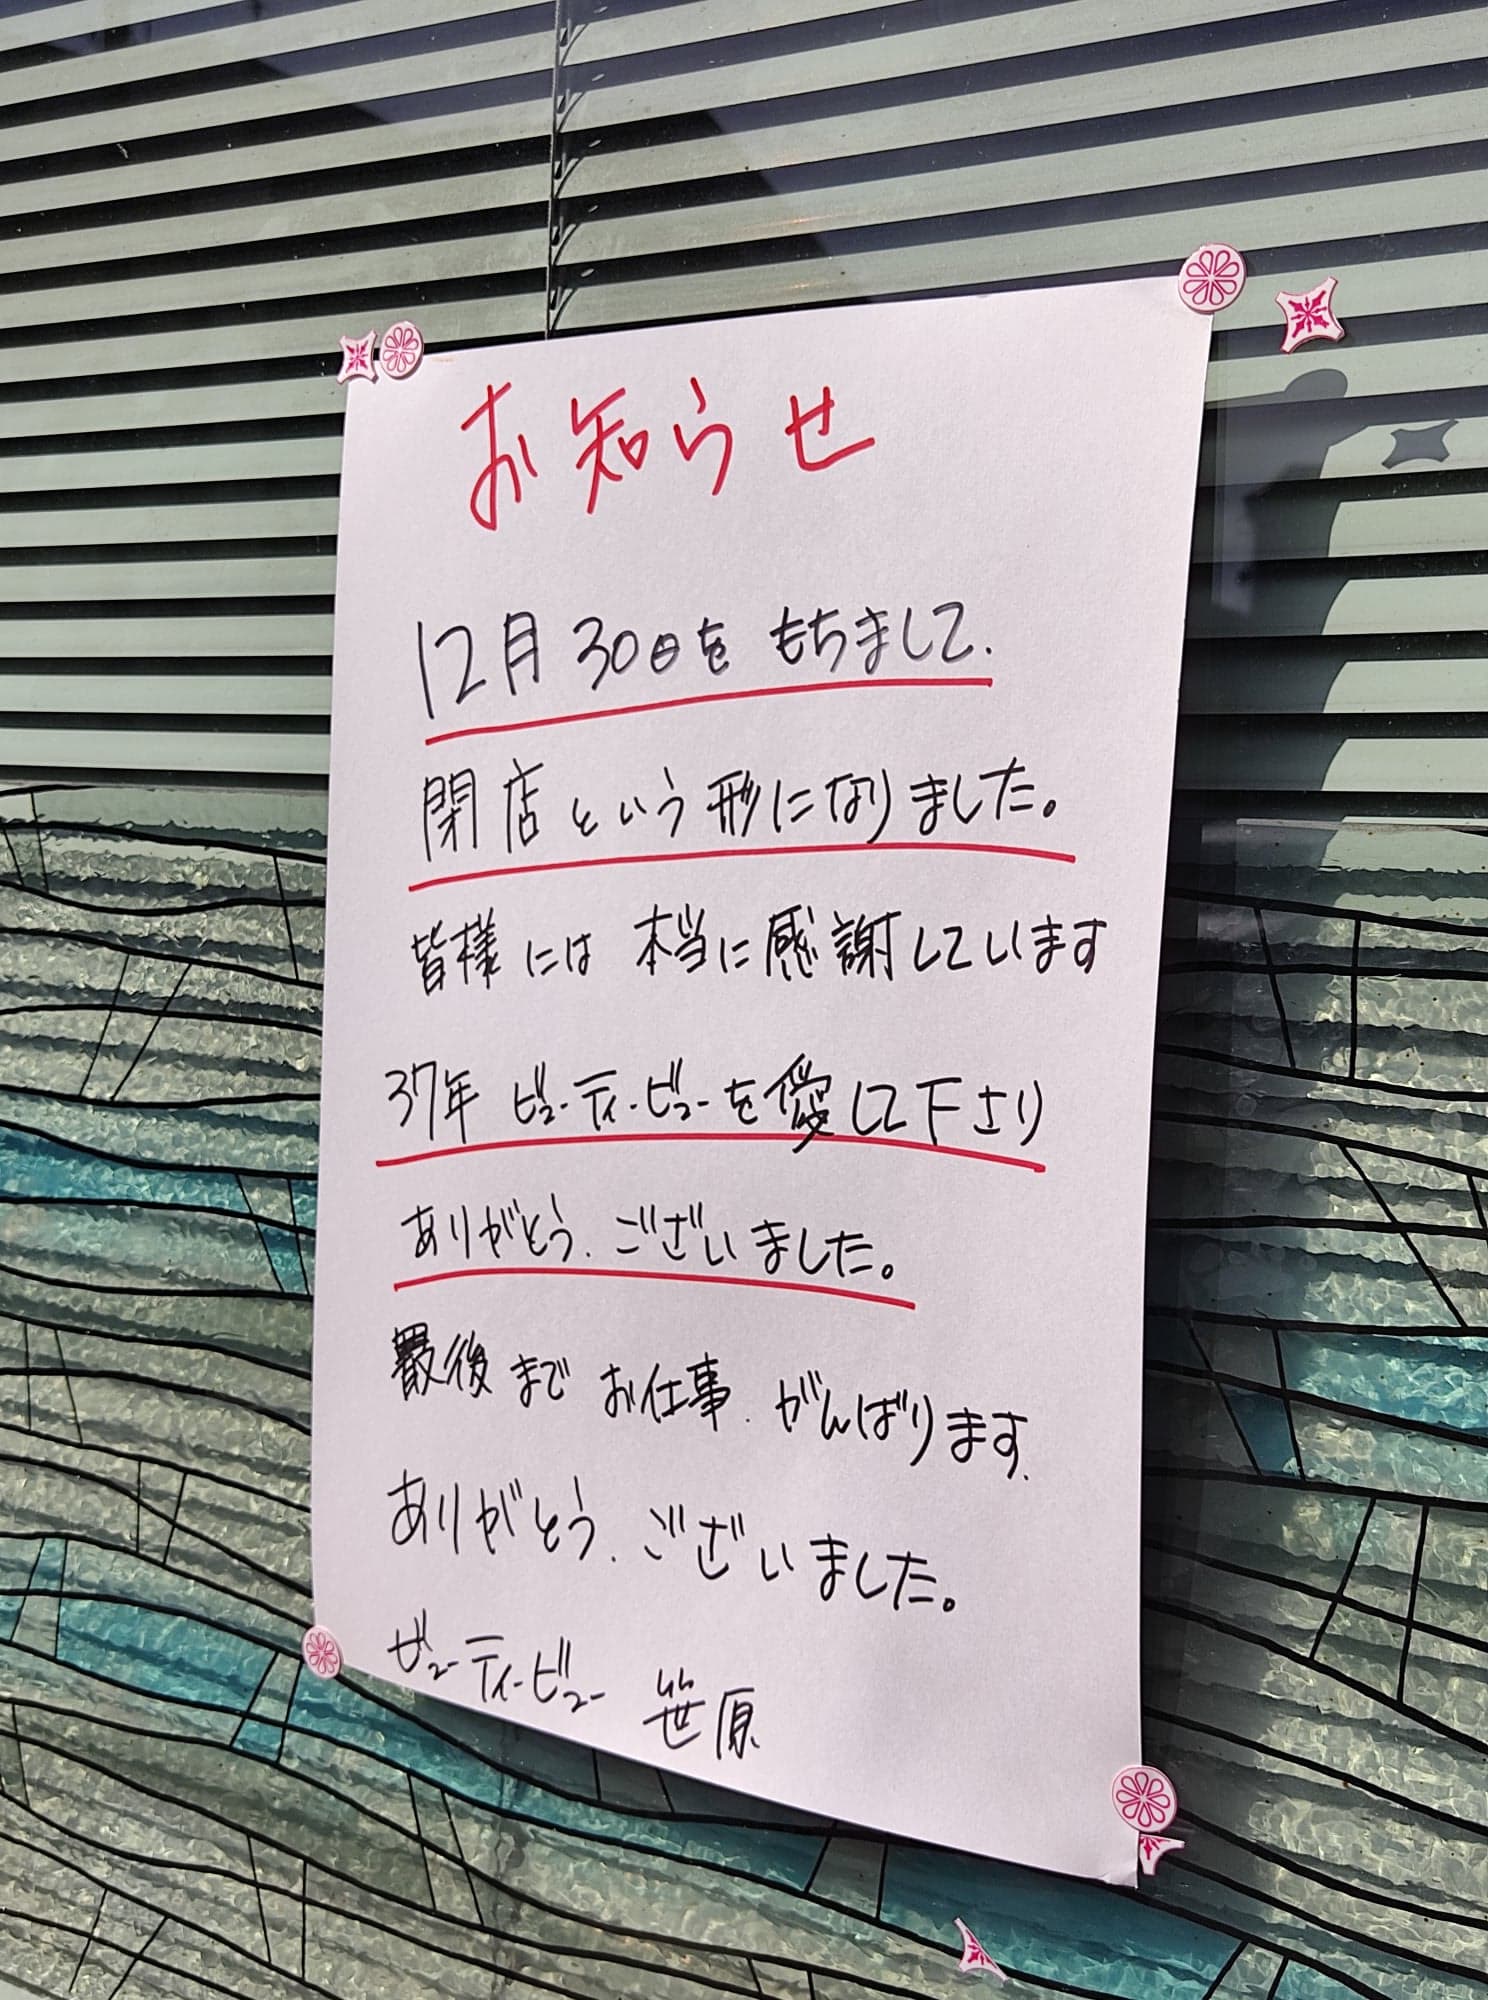 お知らせ
12月30日をもちまして、
閉店という形になりました。
皆様には本当に感謝しています
37年ビューティービューを愛して下さり
ありがとう、ございました。
最後までお仕事、がんばります、
ありがとう、ございました。
ビューティービュー 笹原